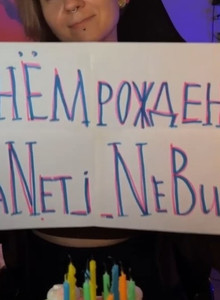 НЁМ РОЖДЕН
aNetj_NeBu